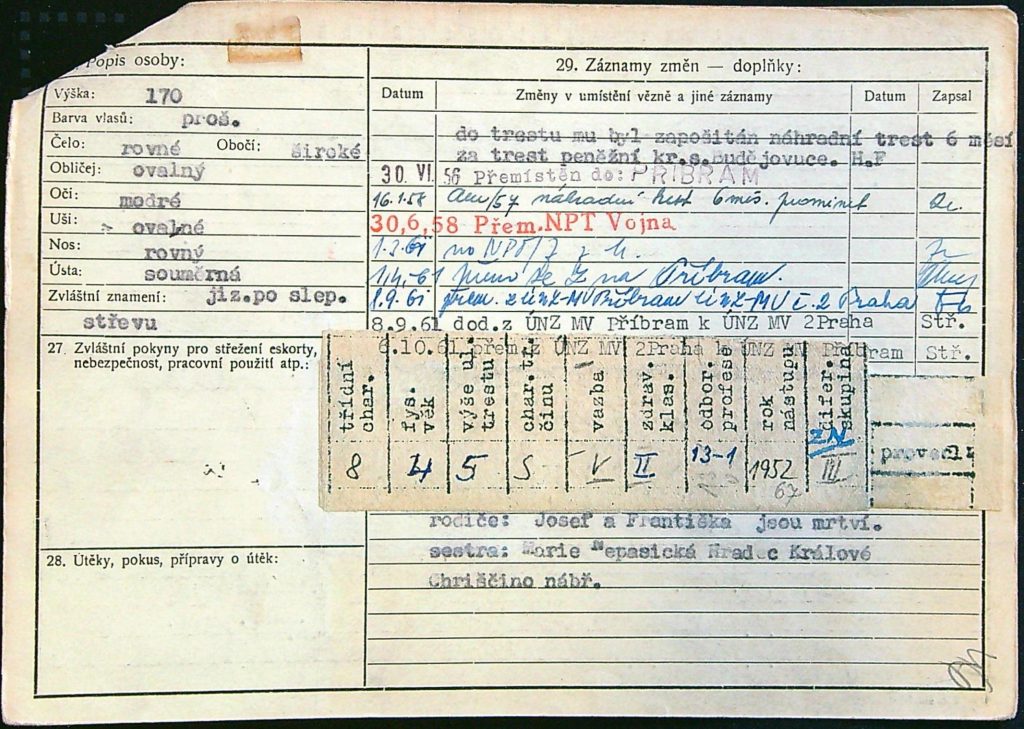 Popis osoby:
Výška: 170
Barva vlasů: proš.
Čelo: rovné Obočí: široké
Obličej: ovalný
Oči: modré
Uši: ovalné
Nos: rovný
Ústa: souměrná
Zvláštní znamení: jiz.po slep.
střevu
27. Zvláštní pokyny pro střežení eskorty,
nebezpečnost, pracovní použití atp.:
28. Útěky, pokus, přípravy o útěk:
29. Záznamy změn — doplňky:
Datum Změny v umístění vězně a jiné záznamy Datum Zapsal
do trestu mu byl započitán náhradní trest 6 měsí
za trest peněžní kr.s.budějovuce. H.F
30 VI. 56 Přemístěn do: PŘIBRAM
16.1.58 náhradní trest 6 měs. prominut
30,6,58 Přem. NPT Vojna
1.3.61
1.4.-61 na Příbram.
1.9.61 přem. z ÚNZ-MV Příbram ÚNZ-MV č.2 Praha
8.9.61 dod.z ÚNZ MV Příbram k ÚNZ MV 2Praha Stř.
6.10.61 přem.z ÚNZ MV 2Praha k ÚNZ MV Příbram Stř.
třídní char.
fys. věk
výše ul. trestu
char.tr. činu
vazba
zdrav. klas.
odbor. profese
rok nástupu
difer. skupina
8 4 5 S V II 13-1 1952 ZN III
67
provedl:
rodiče: Josef a Františka jsou mrtví.
sestra: Marie Nepasická Hradec Králové
Chriščino nábř.